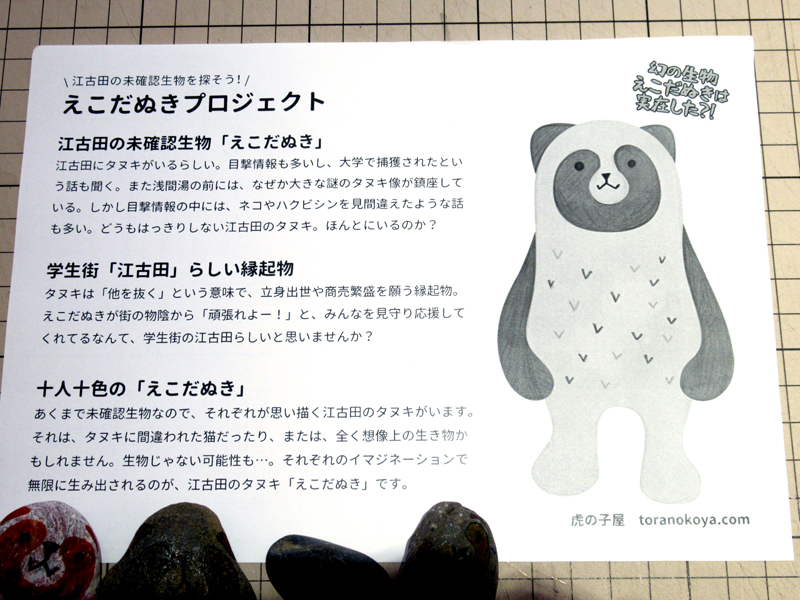 \ 江古田の未確認生物を探そう! /
えこだぬきプロジェクト
幻の生物
えこだぬきは
実在した?!
江古田の未確認生物「えこだぬき」
江古田にタヌキがいるらしい。目撃情報も多いし、大学で捕獲されたとい
う話も聞く。また浅間湯の前には、なぜか大きな謎のタヌキ像が鎮座して
いる。しかし目撃情報の中には、ネコやハクビシンを見間違えたような話
も多い。どうもはっきりしない江古田のタヌキ。ほんとにいるのか?
学生街「江古田」らしい縁起物
タヌキは「他を抜く」という意味で、立身出世や商売繁盛を願う縁起物。
えこだぬきが街の物陰から「頑張れよー!」と、みんなを見守り応援して
くれてるなんて、学生街の江古田らしいと思いませんか?
十人十色の「えこだぬき」
あくまで未確認生物なので、それぞれが思い描く江古田のタヌキがいます。
それは、タヌキに間違われた猫だったり、または、全く想像上の生き物か
もしれません。生物じゃない可能性も…。それぞれのイマジネーションで
無限に生み出されるのが、江古田のタヌキ「えこだぬき」です。
虎の子屋 toranokoya.com